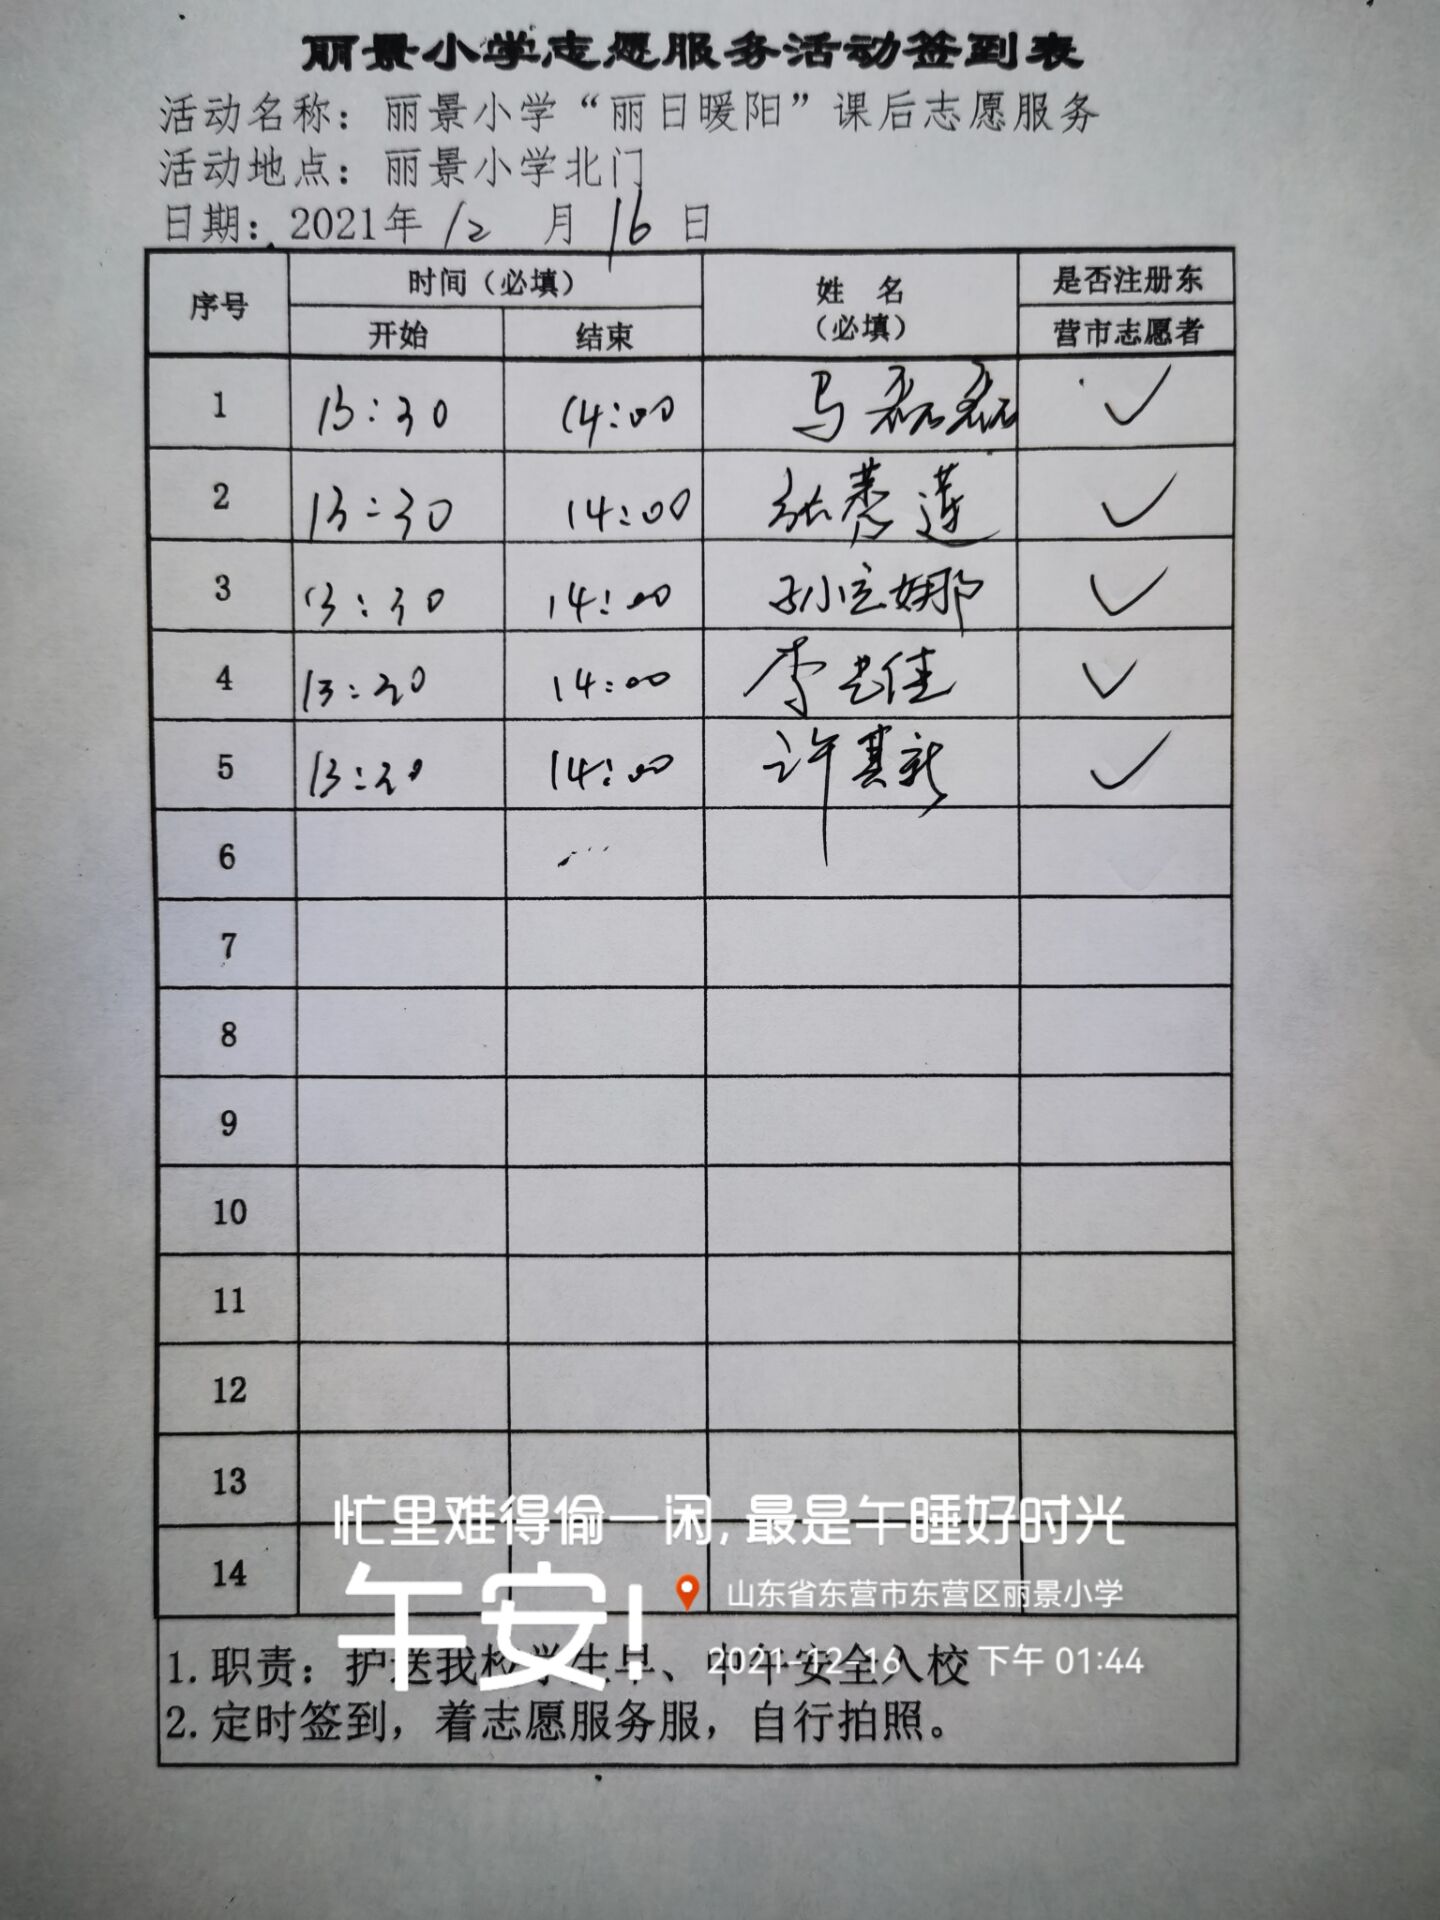 丽景小学志愿服务活动签到表
活动名称：丽景小学“丽日暖阳”课后志愿服务
活动地点：丽景小学北门
日期：2021年 12 月 16 日
序号 时间（必填） 姓 名 是否注册东
开始 结束 （必填） 营市志愿者
1 13:30 14:00 马磊磊 ✓
2 13:30 14:00 莲 ✓
3 13:30 14:00 孙立娜 ✓
4 13:30 14:00 李 佳 ✓
5 13:30 14:00 许其新 ✓
6
7
8
9
10
11
12
13
忙里难得偷一闲，最是午睡好时光
14
午安！
山东省东营市东营区丽景小学
2021-12-16 下午 01:44
1.职责：护送我校学生早、中午安全入校
2.定时签到，着志愿服务服，自行拍照。